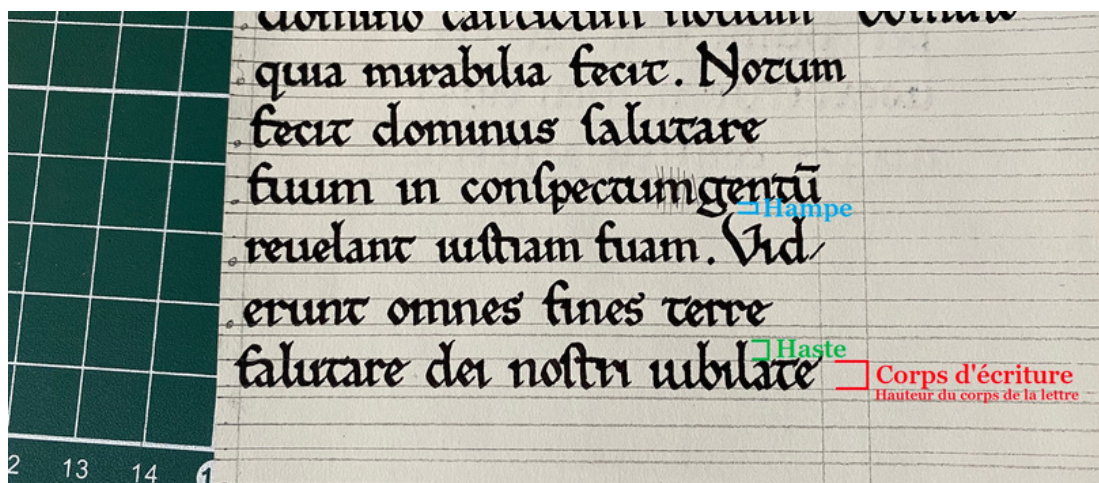 domino canticum nouum
quia mirabilia fecit. Notum
fecit dominus ſalutare
fuum in conſpectum gentū
Hampe
reuelant iuſtiam fuam. Vid/
erunt omnes fines terre
Haste
falutare dei noſtri iubilate
Corps d'écriture
Hauteur du corps de la lettre
12 13 14